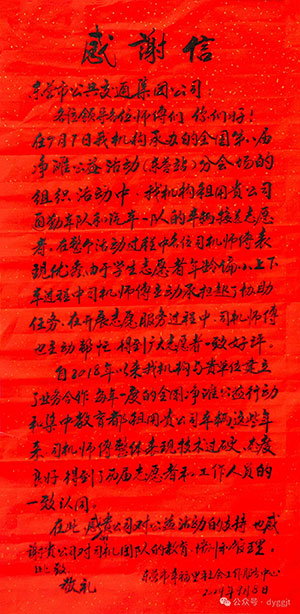 感謝信
东营市公共交通集团公司
各位领导各位师傅们 你们好!
在9月7日我机构承办的全国第八届
净滩公益活动(东营站)分会场的
组织活动中,我机构租用贵公司
通勤车队和汽车一队的车辆接送志愿
者,在整个活动过程中各位司机师傅表
现优秀,由于学生志愿者年龄偏小,上下
车过程中司机师傅主动承担起了协助
任务,在开展志愿服务过程中,司机师傅
也主动帮忙,得到广大志愿者一致好评。
自2018年以来我机构与贵单位建立
了业务合作,每年一度的全国净滩公益行动
和集中教育都租用贵公司车辆,这些年
来,司机师傅整体表现技术过硬、态度
良好,得到了历届志愿者和工作人员的
一致认同。
在此,感贵公司对公益活动的支持,也感
谢贵公司对司机团队的教育、
此致
敬礼
东营市幸福里社会工作服务中心
公众号 · dyggjt